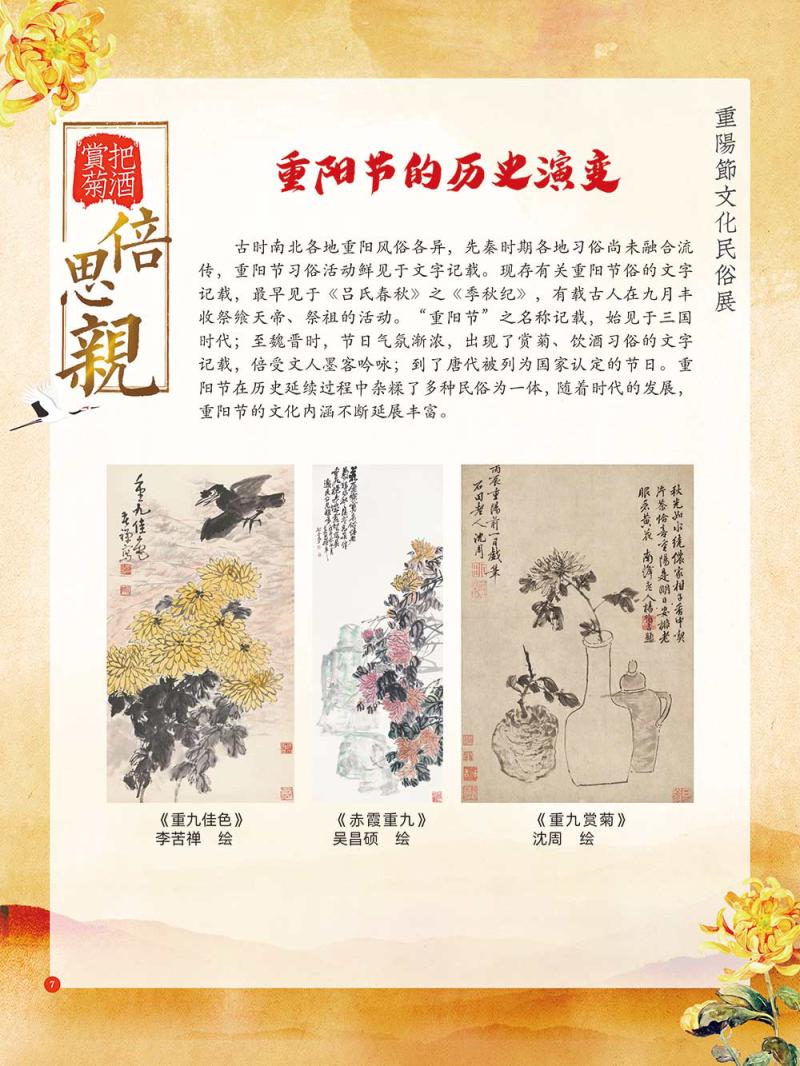 把酒
賞菊
倍思親
重陽節文化民俗展
重阳节的历史演变
古时南北各地重阳风俗各异，先秦时期各地习俗尚未融合流
传，重阳节习俗活动鲜见于文字记载。现存有关重阳节俗的文字
记载，最早见于《吕氏春秋》之《季秋纪》，有载古人在九月丰
收祭飨天帝、祭祖的活动。“重阳节”之名称记载，始见于三国
时代；至魏晋时，节日气氛渐浓，出现了赏菊、饮酒习俗的文字
记载，倍受文人墨客吟咏；到了唐代被列为国家认定的节日。重
阳节在历史延续过程中杂糅了多种民俗为一体，随着时代的发展，
重阳节的文化内涵不断延展丰富。
重九佳色
苦禅写
丙辰重陽前一日戲筆
石田老人沈周
《重九佳色》
李苦禅 绘
《赤霞重九》
吴昌硕 绘
《重九赏菊》
沈周 绘
7